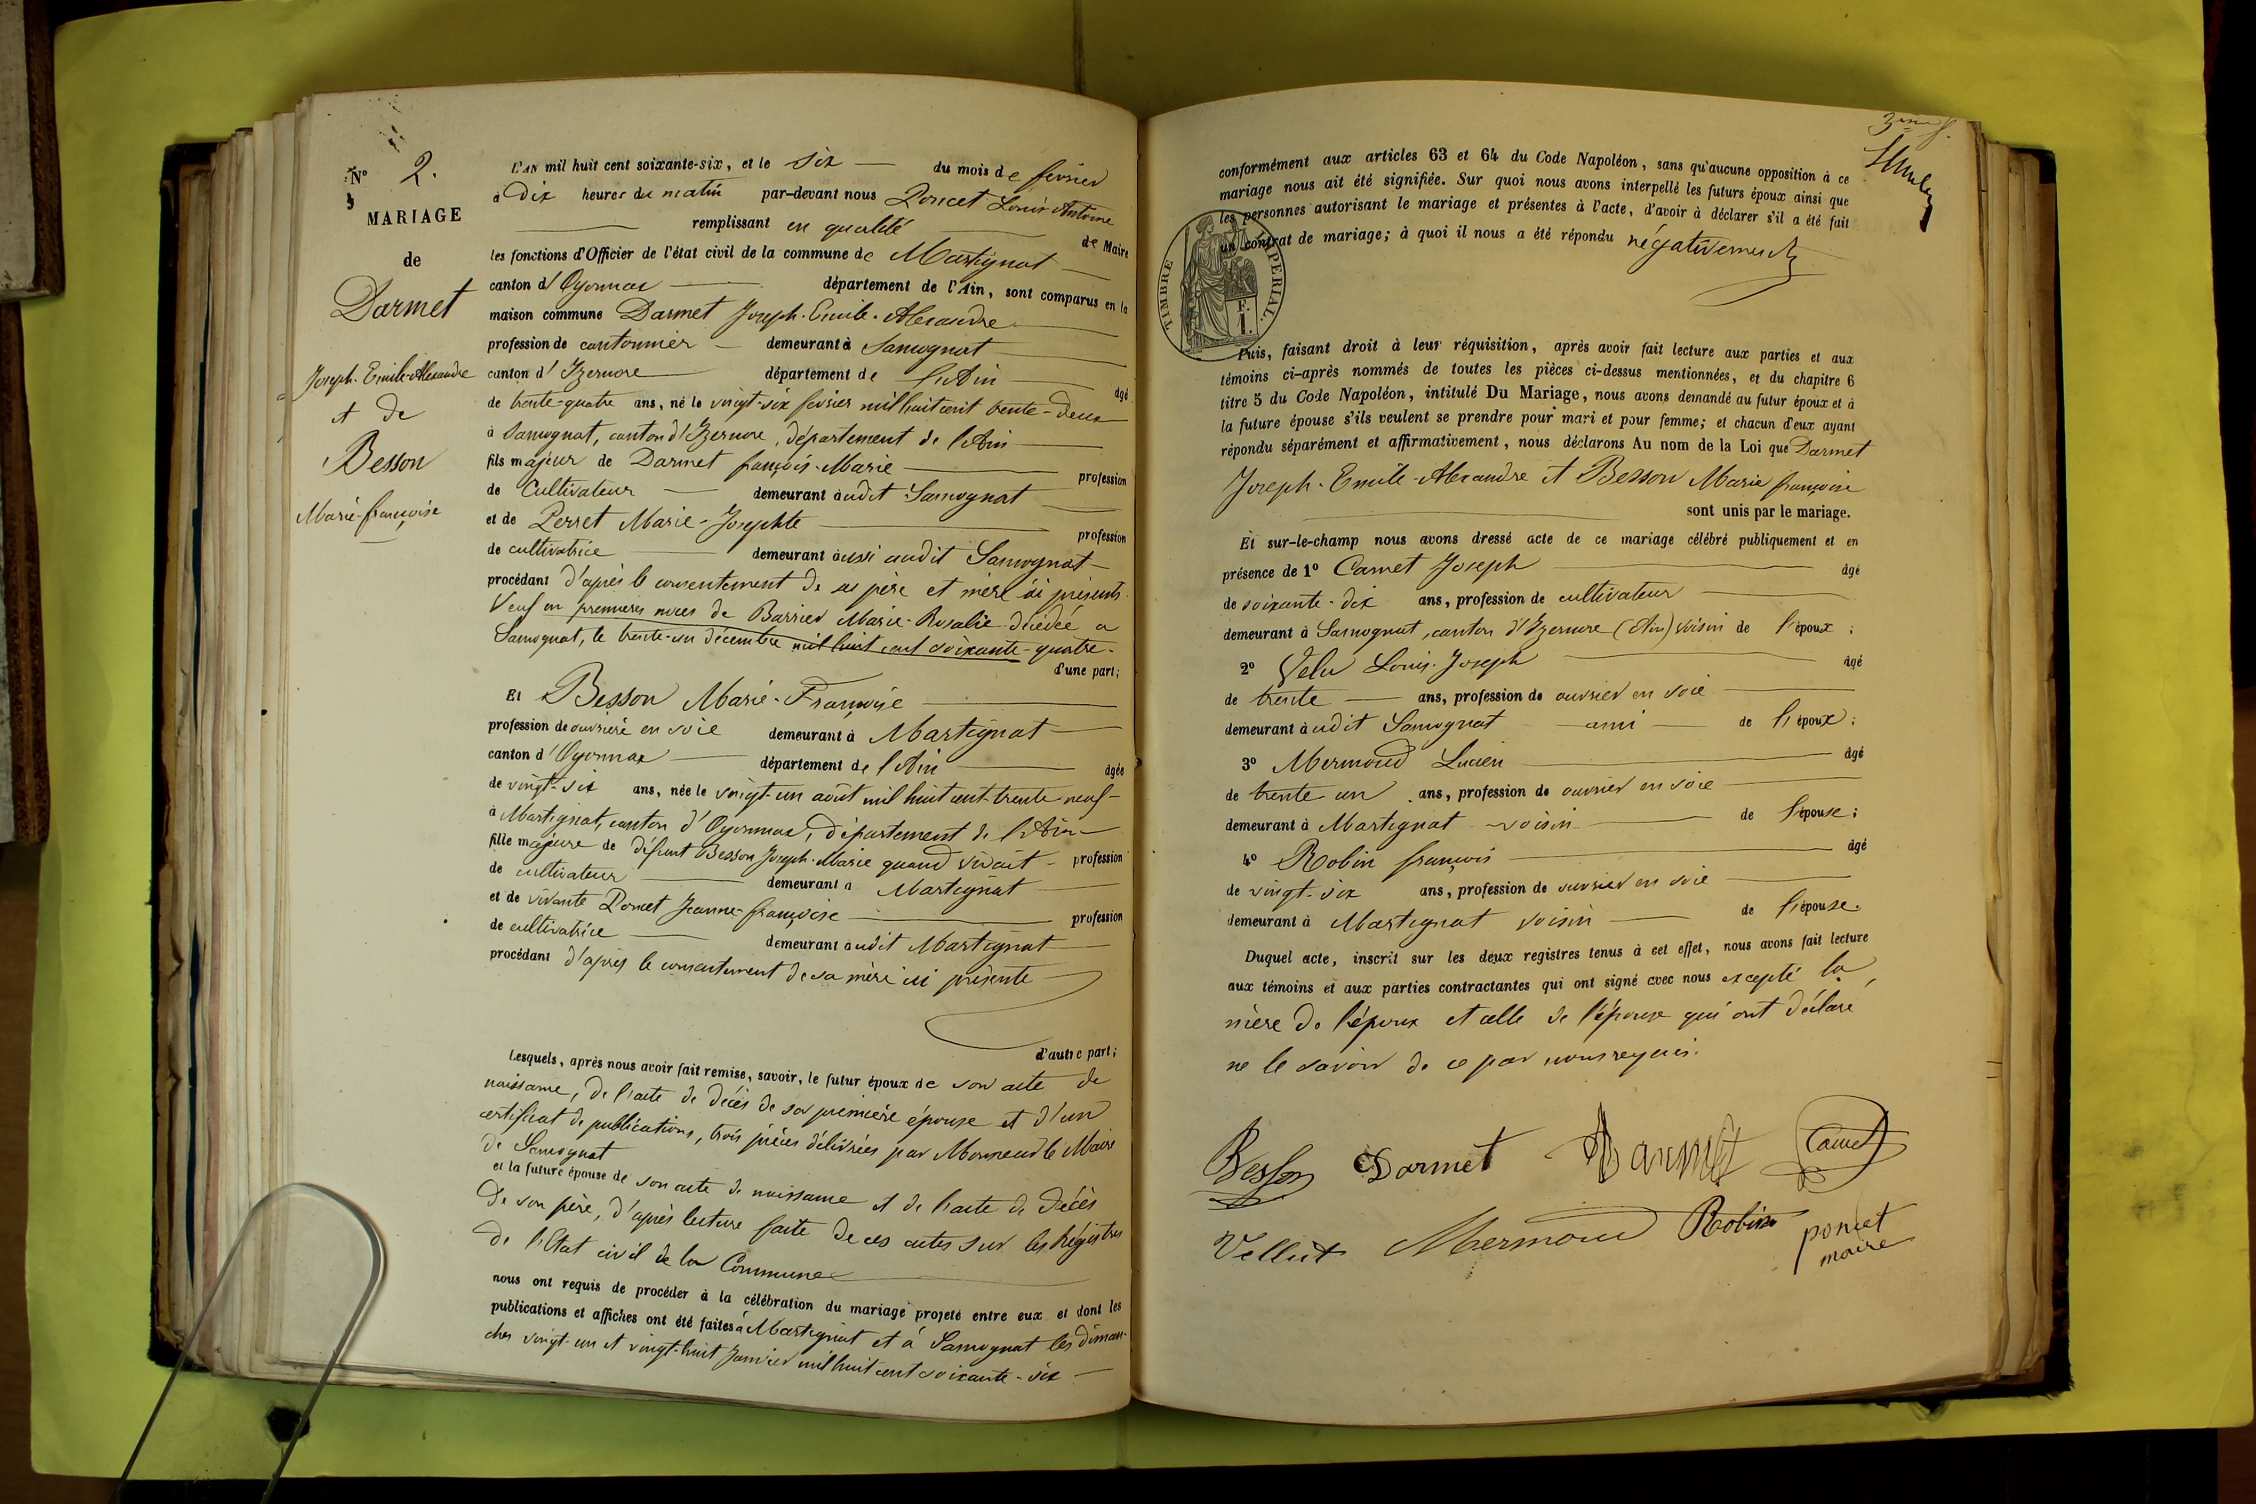 N° 2.
MARIAGE
de
Darmet
Joseph-Emile-Alexandre
et de
Besson
Marie-françoise
L'AN mil huit cent soixante-six, et le six du mois de février
à Dix heures du matin par-devant nous Poncet Louis Antoine
remplissant en qualité de Maire
les fonctions d'Officier de l'état civil de la commune de Martignat
canton d'Oyonnax département de l'Ain, sont comparus en la
maison commune Darmet Joseph-Emile-Alexandre
profession de cantonnier demeurant à Samognat
canton d'Izernore département de l'Ain âgé
de trente-quatre ans, né le vingt-six février mil huit cent trente-deux
à Samognat, canton d'Izernore, département de l'Ain
fils majeur de Darmet françois-Marie profession
de Cultivateur demeurant audit Samognat
et de Perret Marie-Josephte profession
de cultivatrice demeurant aussi audit Samognat
procédant d'après le consentement de ses père et mère ici présents.
Veuf en premières noces de Barrier Marie-Rosalie décédée a
Samognat, le trente-un décembre mil huit cent soixante-quatre.
d'une part;
Et Besson Marie-Françoise
profession de ouvrière en soie demeurant à Martignat
canton d'Oyonnax département de l'Ain âgée
de vingt-six ans, née le vingt-un août mil huit cent trente-neuf
à Martignat, canton d'Oyonnax, département de l'Ain
fille majeure de défunt Besson Joseph-Marie quand vivait profession
de cultivateur demeurant à Martignat
et de vivante Poncet Jeanne-françoise profession
de cultivatrice demeurant audit Martignat
procédant d'après le consentement de sa mère ici présente
d'autre part;
Lesquels, après nous avoir fait remise, savoir, le futur époux de son acte de
naissance, de l'acte de décès de sa première épouse et d'un
certificat de publications, trois pièces délivrées par Monsieur le Maire
de Samognat
et la future épouse de son acte de naissance et de l'acte de décès
de son père, d'après lecture faite de ces actes sur les Régistres
de l'Etat civil de la Commune
nous ont requis de procéder à la célébration du mariage projeté entre eux et dont les
publications et affiches ont été faites à Martignat et à Samognat les diman-
ches vingt-un et vingt-huit Janvier mil huit cent soixante-six
3ème f.
conformément aux articles 63 et 64 du Code Napoléon, sans qu'aucune opposition à ce
mariage nous ait été signifiée. Sur quoi nous avons interpellé les futurs époux ainsi que
les personnes autorisant le mariage et présentes à l'acte, d'avoir à déclarer s'il a été fait
un contrat de mariage; à quoi il nous a été répondu négativement
TIMBRE IMPERIAL.
Puis, faisant droit à leur réquisition, après avoir fait lecture aux parties et aux
témoins ci-après nommés de toutes les pièces ci-dessus mentionnées, et du chapitre 6
titre 5 du Code Napoléon, intitulé Du Mariage, nous avons demandé au futur époux et à
la future épouse s'ils veulent se prendre pour mari et pour femme; et chacun d'eux ayant
répondu séparément et affirmativement, nous déclarons Au nom de la Loi que Darmet
Joseph-Emile-Alexandre et Besson Marie françoise
sont unis par le mariage.
Et sur-le-champ nous avons dressé acte de ce mariage célébré publiquement et en
présence de 1° Carnet Joseph âgé
de soixante-dix ans, profession de cultivateur
demeurant à Samognat, canton d'Izernore (Ain) voisin de l'époux;
2° Velu Louis-Joseph âgé
de trente ans, profession de ouvrier en soie
demeurant audit Samognat ami de l'époux;
3° Mermoud Lucien âgé
de trente un ans, profession de ouvrier en soie
demeurant à Martignat voisin de l'épouse;
4° Robin françois âgé
de vingt-six ans, profession de ouvrier en soie
demeurant à Martignat voisin de l'épouse.
Duquel acte, inscrit sur les deux registres tenus à cet effet, nous avons fait lecture
aux témoins et aux parties contractantes qui ont signé avec nous excepté la
mère de l'époux et celle de l'épouse qui ont déclaré
ne le savoir de ce par nous requis.
Besson Darmet Darmet Carnet
Vellut Mermoud Robin poncet
maire